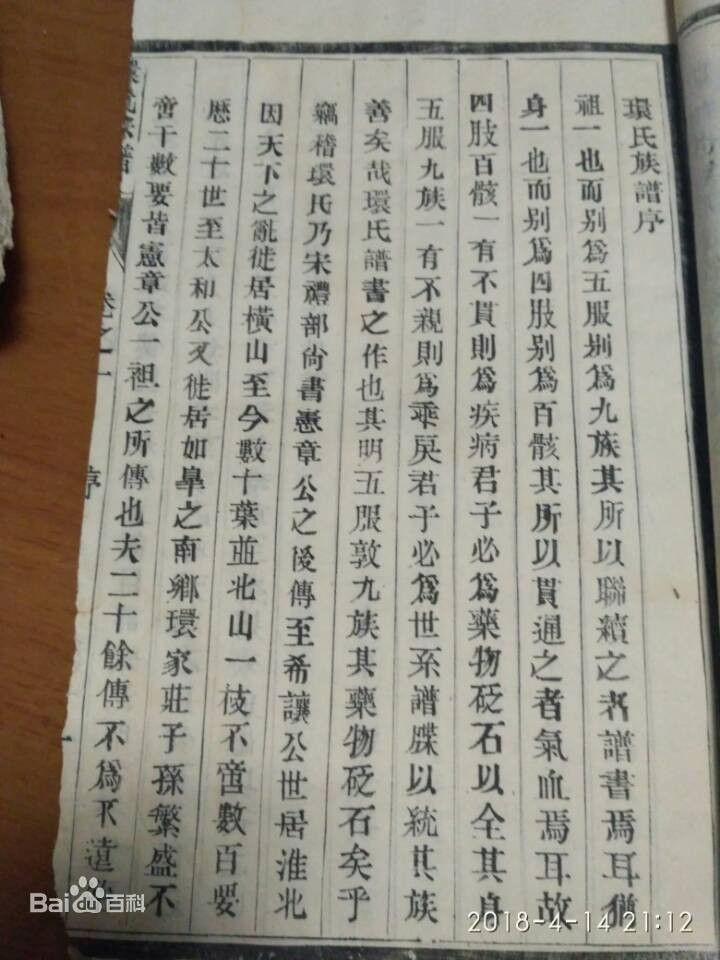 環氏族譜序
祖一也而别爲五服别爲九族其所以聯續之者譜書焉耳猶
身一也而别爲四肢别爲百骸其所以貫通之者氣血焉耳故
四肢百骸一有不貫則爲疾病君子必爲藥物砭石以全其身
五服九族一有不親則爲乖戾君子必爲世系譜牒以統其族
善矣哉環氏譜書之作也其明五服敦九族其藥物砭石矣乎
竊稽環氏乃宋禮部尚書憲章公之後傳至希讓公世居淮北
因天下之亂徙居橫山至今數十葉並北山一枝不啻數百要
歷二十世至太和公又徙居如臯之南鄉環家莊子孫繁盛不
啻千數要皆憲章公一祖之所傳也夫二十餘傳不爲不遠
卷之一
序
Baidu百科
2018-4-14 21:12